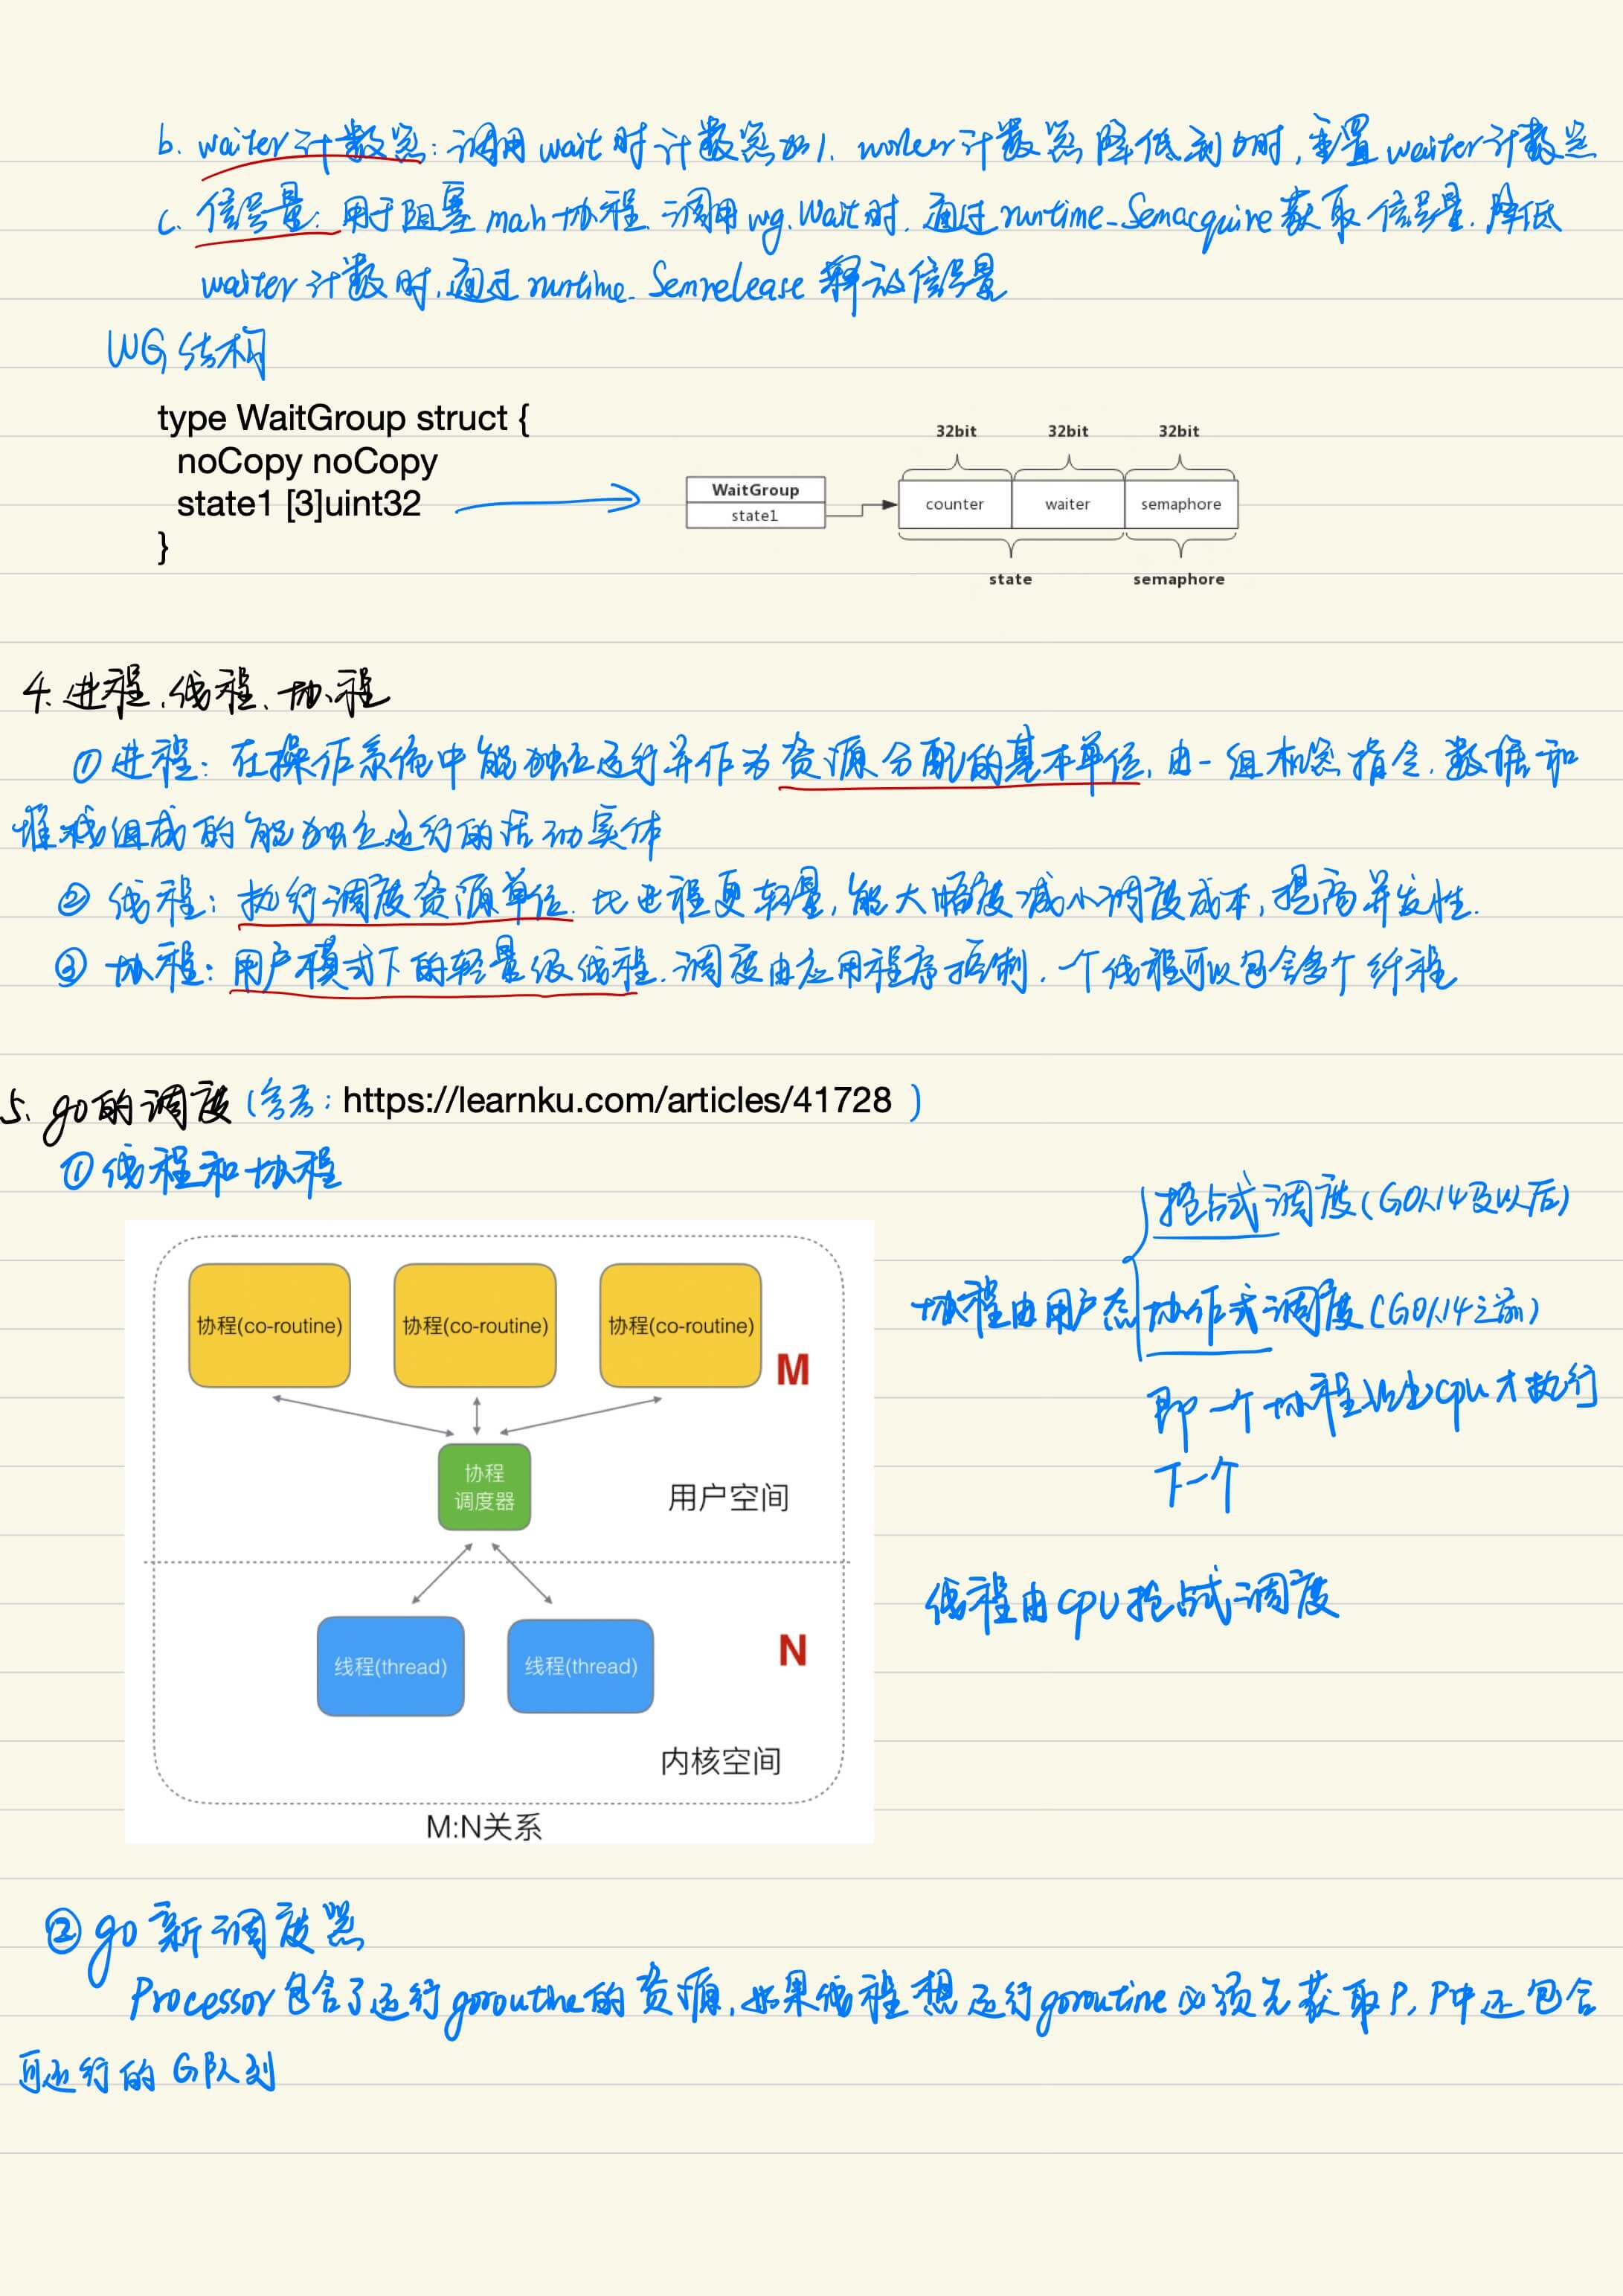 b. waiter计数器：调用wait时计数器加1. worker计数器降低到0时，重置waiter计数器
c. 信号量：用于阻塞main协程.调用wg.Wait时.通过runtime_Semacquire获取信号量.降低
waiter计数时.通过runtime_Semrelease释放信号量
WG结构
type WaitGroup struct {
noCopy noCopy
state1 [3]uint32
}
32bit 32bit 32bit
WaitGroup
state1
counter waiter semaphore
state semaphore
4.进程、线程、协程
①进程：在操作系统中能独立运行并作为资源分配的基本单位，由一组机器指令.数据和
堆栈组成的能独立运行的活动实体
②线程：执行调度资源单位.比进程更轻量，能大幅度减小调度成本，提高并发性.
③协程：用户模式下的轻量级线程.调度由应用程序控制.一个线程可以包含多个纤程
5. go的调度(参考：https://learnku.com/articles/41728)
①线程和协程
协程(co-routine) 协程(co-routine) 协程(co-routine)
M
协程
调度器
用户空间
线程(thread) 线程(thread)
N
内核空间
M:N关系
抢占式调度(GO1.14及以后)
协程由用户态 协作式调度(GO1.14之前)
即一个协程让出cpu才执行
下一个
线程由CPU抢占式调度
②go新调度器
Processor包含了运行goroutine的资源，如果线程想运行goroutine必须先获取P，P中还包含
可运行的G队列